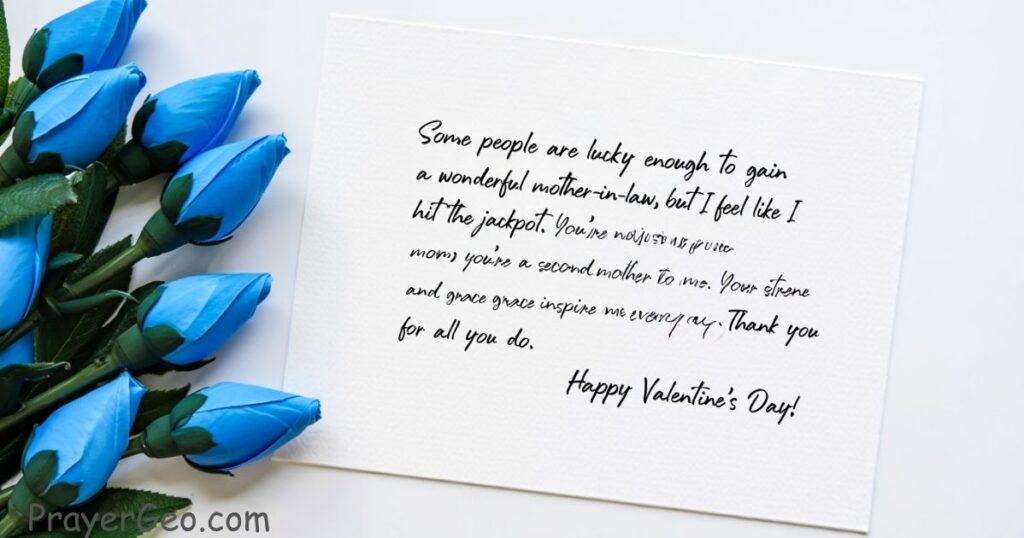 Some people are lucky enough to gain
a wonderful mother-in-law, but I feel like I
hit the jackpot. You're
mom, you're a second mother to me. Your strene
and grace grace inspire me
Thank you
for all you do.
Happy Valentine's Day!
PrayerGeo.com